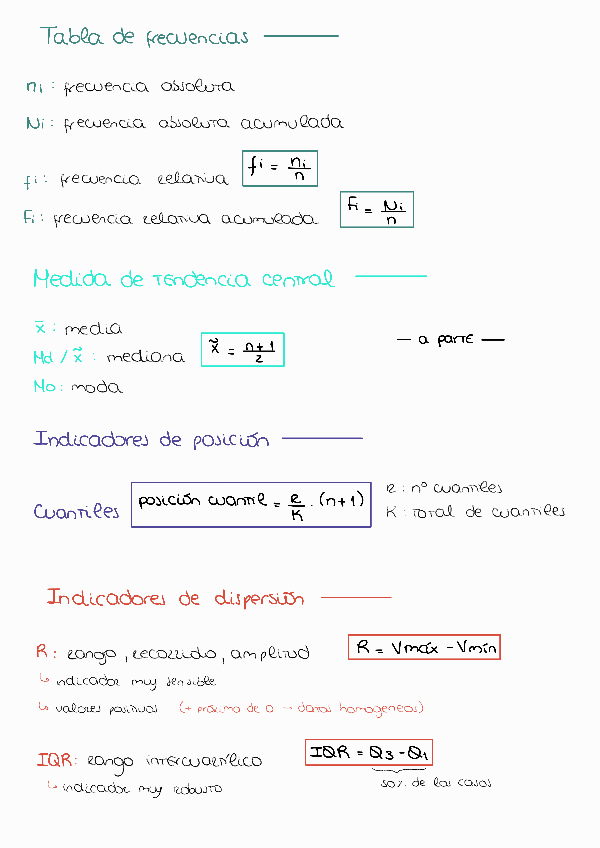 Tabla de frecuencias
ni : frecuencia absoluta
Ni : frecuencia absoluta acumulada
fi : frecuencia relativa fi = ni / n
Fi : frecuencia relativa acumulada Fi = Ni / n
Medida de tendencia central
x̄ : media
Md / x̃ : mediana x̃ = n+1 / 2 — a parte —
Mo : moda
Indicadores de posición
Cuantiles posición cuantil = r / K · (n+1)
r : nº cuantiles
K : total de cuantiles
Indicadores de dispersión
R : rango, recorrido, amplitud R = Vmáx - Vmín
↳ indicador muy sensible
↳ valores positivos (+ próximo de 0 → datos homogeneos)
IQR : rango intercuartílico IQR = Q3 - Q1
↳ indicador muy robusto 50% de los casos